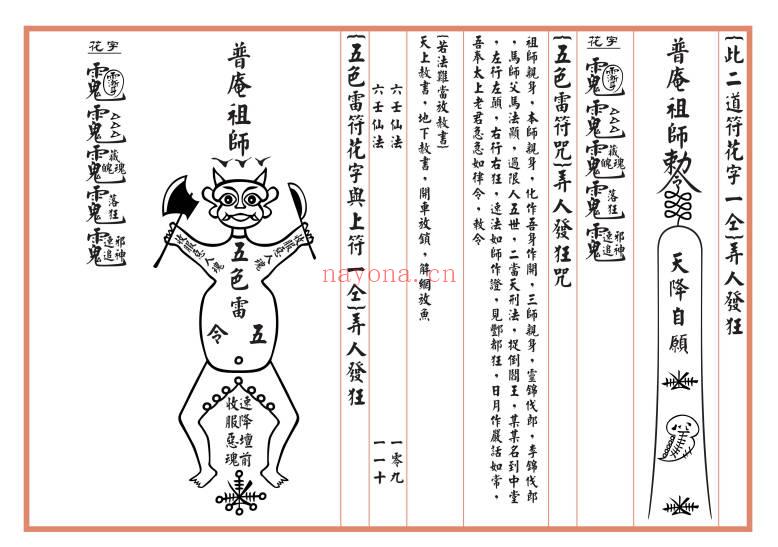 {此二道符花字一仝}弄人發狂
普庵祖師勅令
天降自願
花字
落狂
邪神
速追
{五色雷符咒}弄人發狂咒
祖師親身，本師親身，化作吾身作開，三師親身，雪錦伐郎，李錦伐郎
，馬師父馬法顯，過限人五世，二當天刑法，捉倒閻王，某某名到中堂
，左行左顛，右行右狂，速法如師作證，見酆都狂，日月作嚴話如常，
吾奉太上老君急急如律令，敕令
{若法難當放赦書}
天上赦書，地下赦書，開車放鎖，解網放魚
六壬仙法
一零九
六壬仙法
一一十
{五色雷符花字與上符一仝}弄人發狂
普庵祖師
收服惡人魂
收服惡人魂
五色雷
令
五
速降壇前
收服惡魂
花字
落狂
邪神
速追
nayona.cn